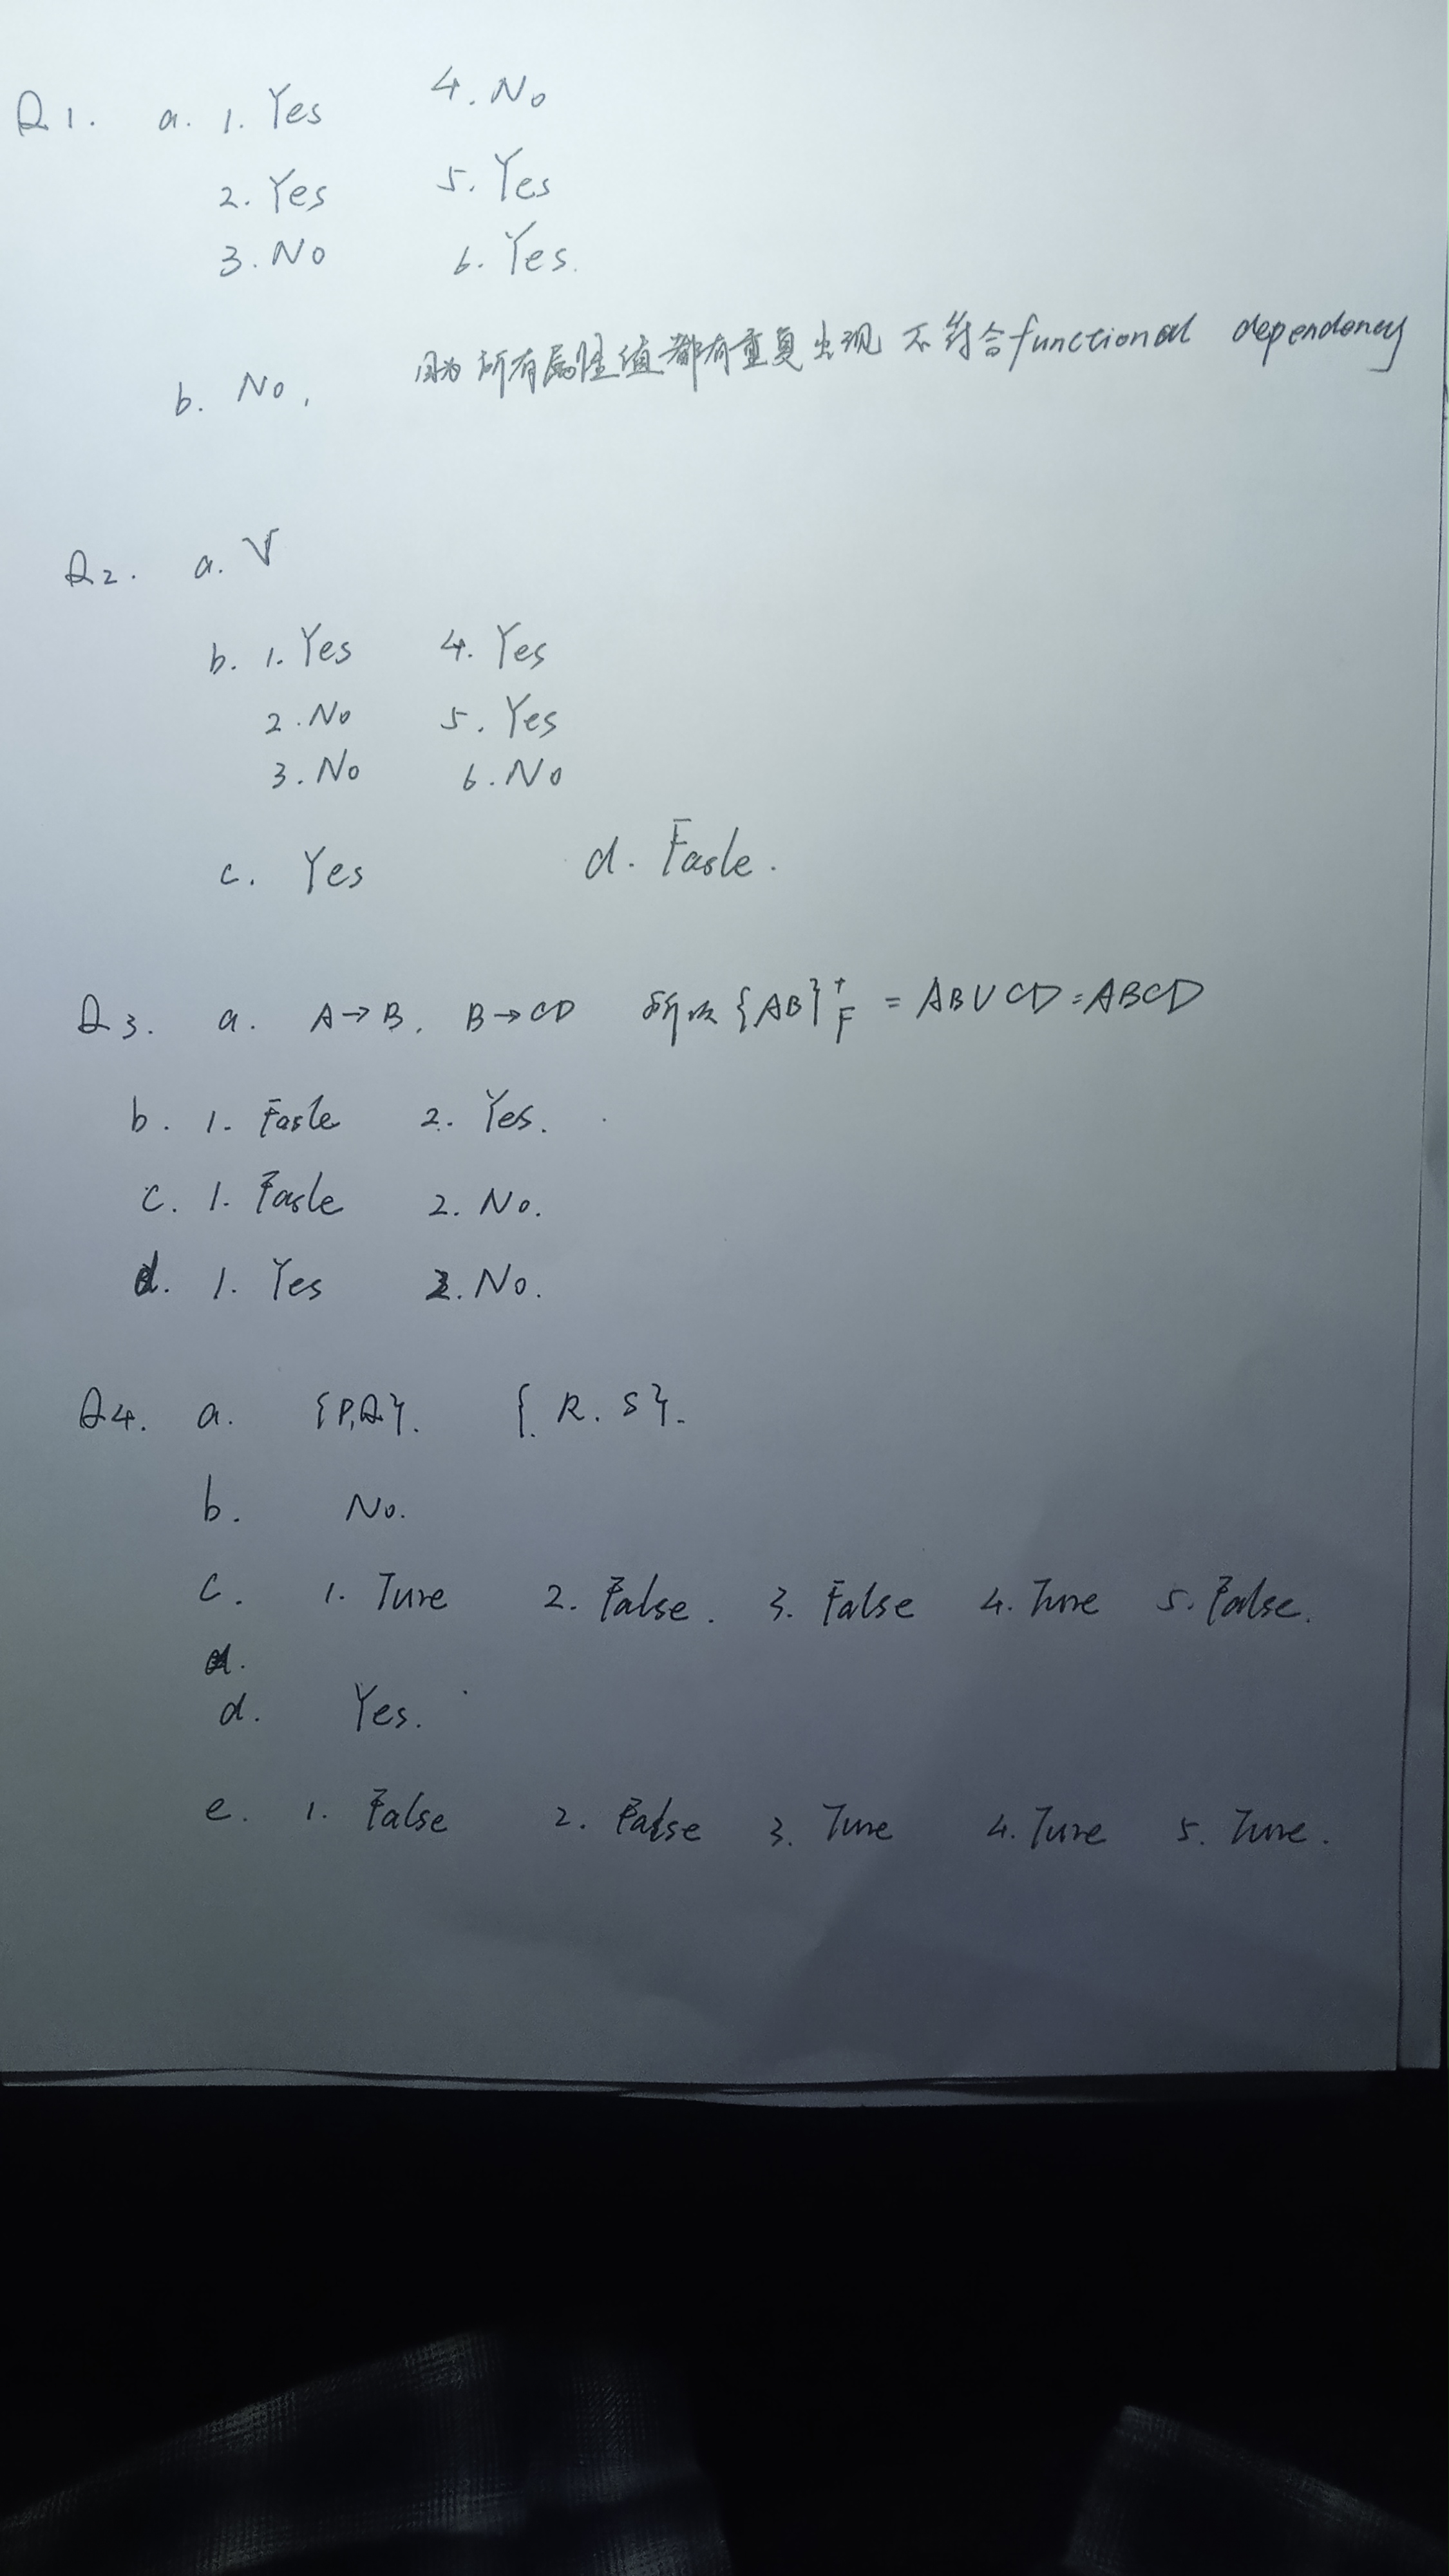 Q1. a. 1. Yes 4. No
2. Yes 5. Yes
3. No 6. Yes.
b. No, 因为所有属性值都有重复出现 不符合functional dependency
Q2. a. V
b. 1. Yes 4. Yes
2. No 5. Yes
3. No 6. No
c. Yes d. Fasle.
Q3. a. A→B, B→CD 所以{AB}⁺F = ABUCD=ABCD
b. 1. Fasle 2. Yes.
c. 1. Fasle 2. No.
d. 1. Yes 2. No.
Q4. a. {P,Q}. {R.S}.
b. No.
c. 1. Ture 2. False. 3. False 4. Ture 5. False.
d. Yes.
e. 1. False 2. False 3. Ture 4. Ture 5. Ture.